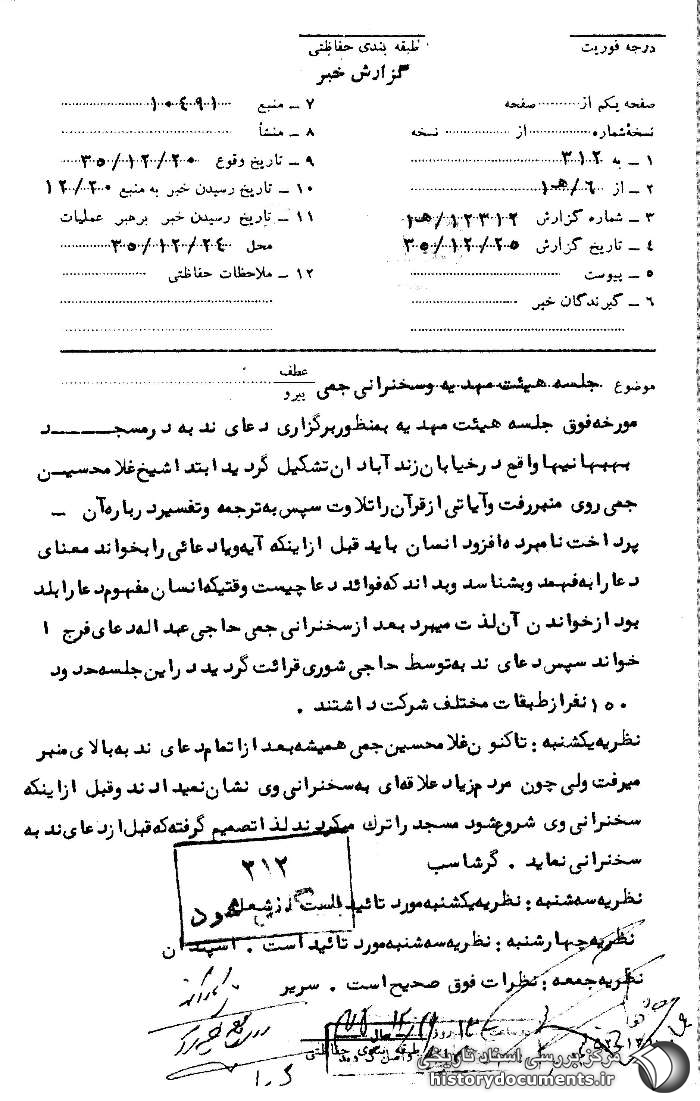 درجه فوریت
طبقه بندی حفاظتی
گزارش خبر
صفحه یکم از ............ صفحه
نسخهٔ شماره ............ از ............ نسخه
۱ ـ به ۳۱۲
۲ ـ از ۶/هـ۱
۳ ـ شماره گزارش ۱۲۳۱۲/هـ۱
۴ ـ تاریخ گزارش ۳۵/۱۲/۲۵
۵ ـ پیوست
۶ ـ گیرندگان خبر
۷ ـ منبع ۱۰۴۹۱
۸ ـ منشأ
۹ ـ تاریخ وقوع ۳۵/۱۲/۲۰
۱۰ ـ تاریخ رسیدن خبر به منبع ۱۲/۲۰
۱۱ ـ تاریخ رسیدن خبر برهبر عملیات
محل ۳۵/۱۲/۲۴
۱۲ ـ ملاحظات حفاظتی
موضوع جلسه هیئت مهدیه وسخنرانی جمی
عطف
پیرو
مورخه فوق جلسه هیئت مهدیه بمنظوربرگزاری دعای ندبه درمسجد
بهبهانیها واقع درخیابان زندآبادان تشکیل گردید ابتدا شیخ غلامحسین
جمی روی منبررفت وآیاتی ازقرآن را تلاوت سپس به ترجمه وتفسیردرباره آن -
پرداخت نامبرده افزود انسان باید قبل ازاینکه آیه ویا دعائی را بخواند معنای
دعا را به فهمد وبشناسد وبداند که فوائد دعا چیست وقتیکه انسان مفهوم دعا را بلد
بود ازخواندن آن لذت میبرد بعد ازسخنرانی جمی حاجی عبداله دعای فرج ا
خواند سپس دعای ندبه توسط حاجی شوری قرائت گردید دراین جلسه حدود
۱۵۰ نفرازطبقات مختلف شرکت داشتند .
نظریه یکشنبه : تاکنون غلامحسین جمی همیشه بعد ازاتمام دعای ندبه بالای منبر
میرفت ولی چون مردم زیاد علاقه ای به سخنرانی وی نشان نمیدادند وقبل ازاینکه
سخنرانی وی شروع شود مسجد را ترک میکردند لذا تصمیم گرفته که قبل ازدعای ندبه
سخنرانی نماید . گرشاسب
نظریه سه شنبه : نظریه یکشنبه مورد تائید است .
نظریه چهارشنبه : نظریه سه شنبه مورد تائید است . اسپندان
نظریه جمعه : نظرات فوق صحیح است . سریر
۳۱۲
مرکز بررسی اسناد تاریخی
historydocuments.ir